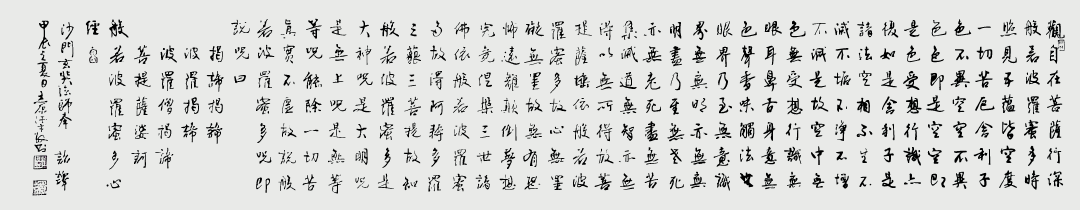 觀自在菩薩行深
般若波羅蜜多時
照見五蘊皆空度
一切苦厄舍利子
色不異空空不異
色色即是空空即
是色受想行識亦
復如是舍利子是
諸法空相不生不
滅不垢不淨不增
不減是故空中無
色無受想行識無
眼耳鼻舌身意無
色聲香味觸法無
眼界乃至無意識
界無無明亦無無
明盡乃至無老死
亦無老死盡無苦
集滅道無智亦無
得以無所得故菩
提薩埵依般若波
羅蜜多故心無罣
礙無罣礙故無有恐
怖遠離顛倒夢想
究竟涅槃三世諸
佛依般若波羅蜜
多故得阿耨多羅
三藐三菩提故知
般若波羅蜜多是
大神咒是大明咒
是無上咒是無等
等咒能除一切苦
真實不虛故說般
若波羅蜜多咒即
說咒曰
揭諦揭諦
波羅揭諦
波羅僧揭諦
菩提薩婆訶
般若波羅蜜多心
經
沙門玄奘法師奉詔譯
甲辰之夏日